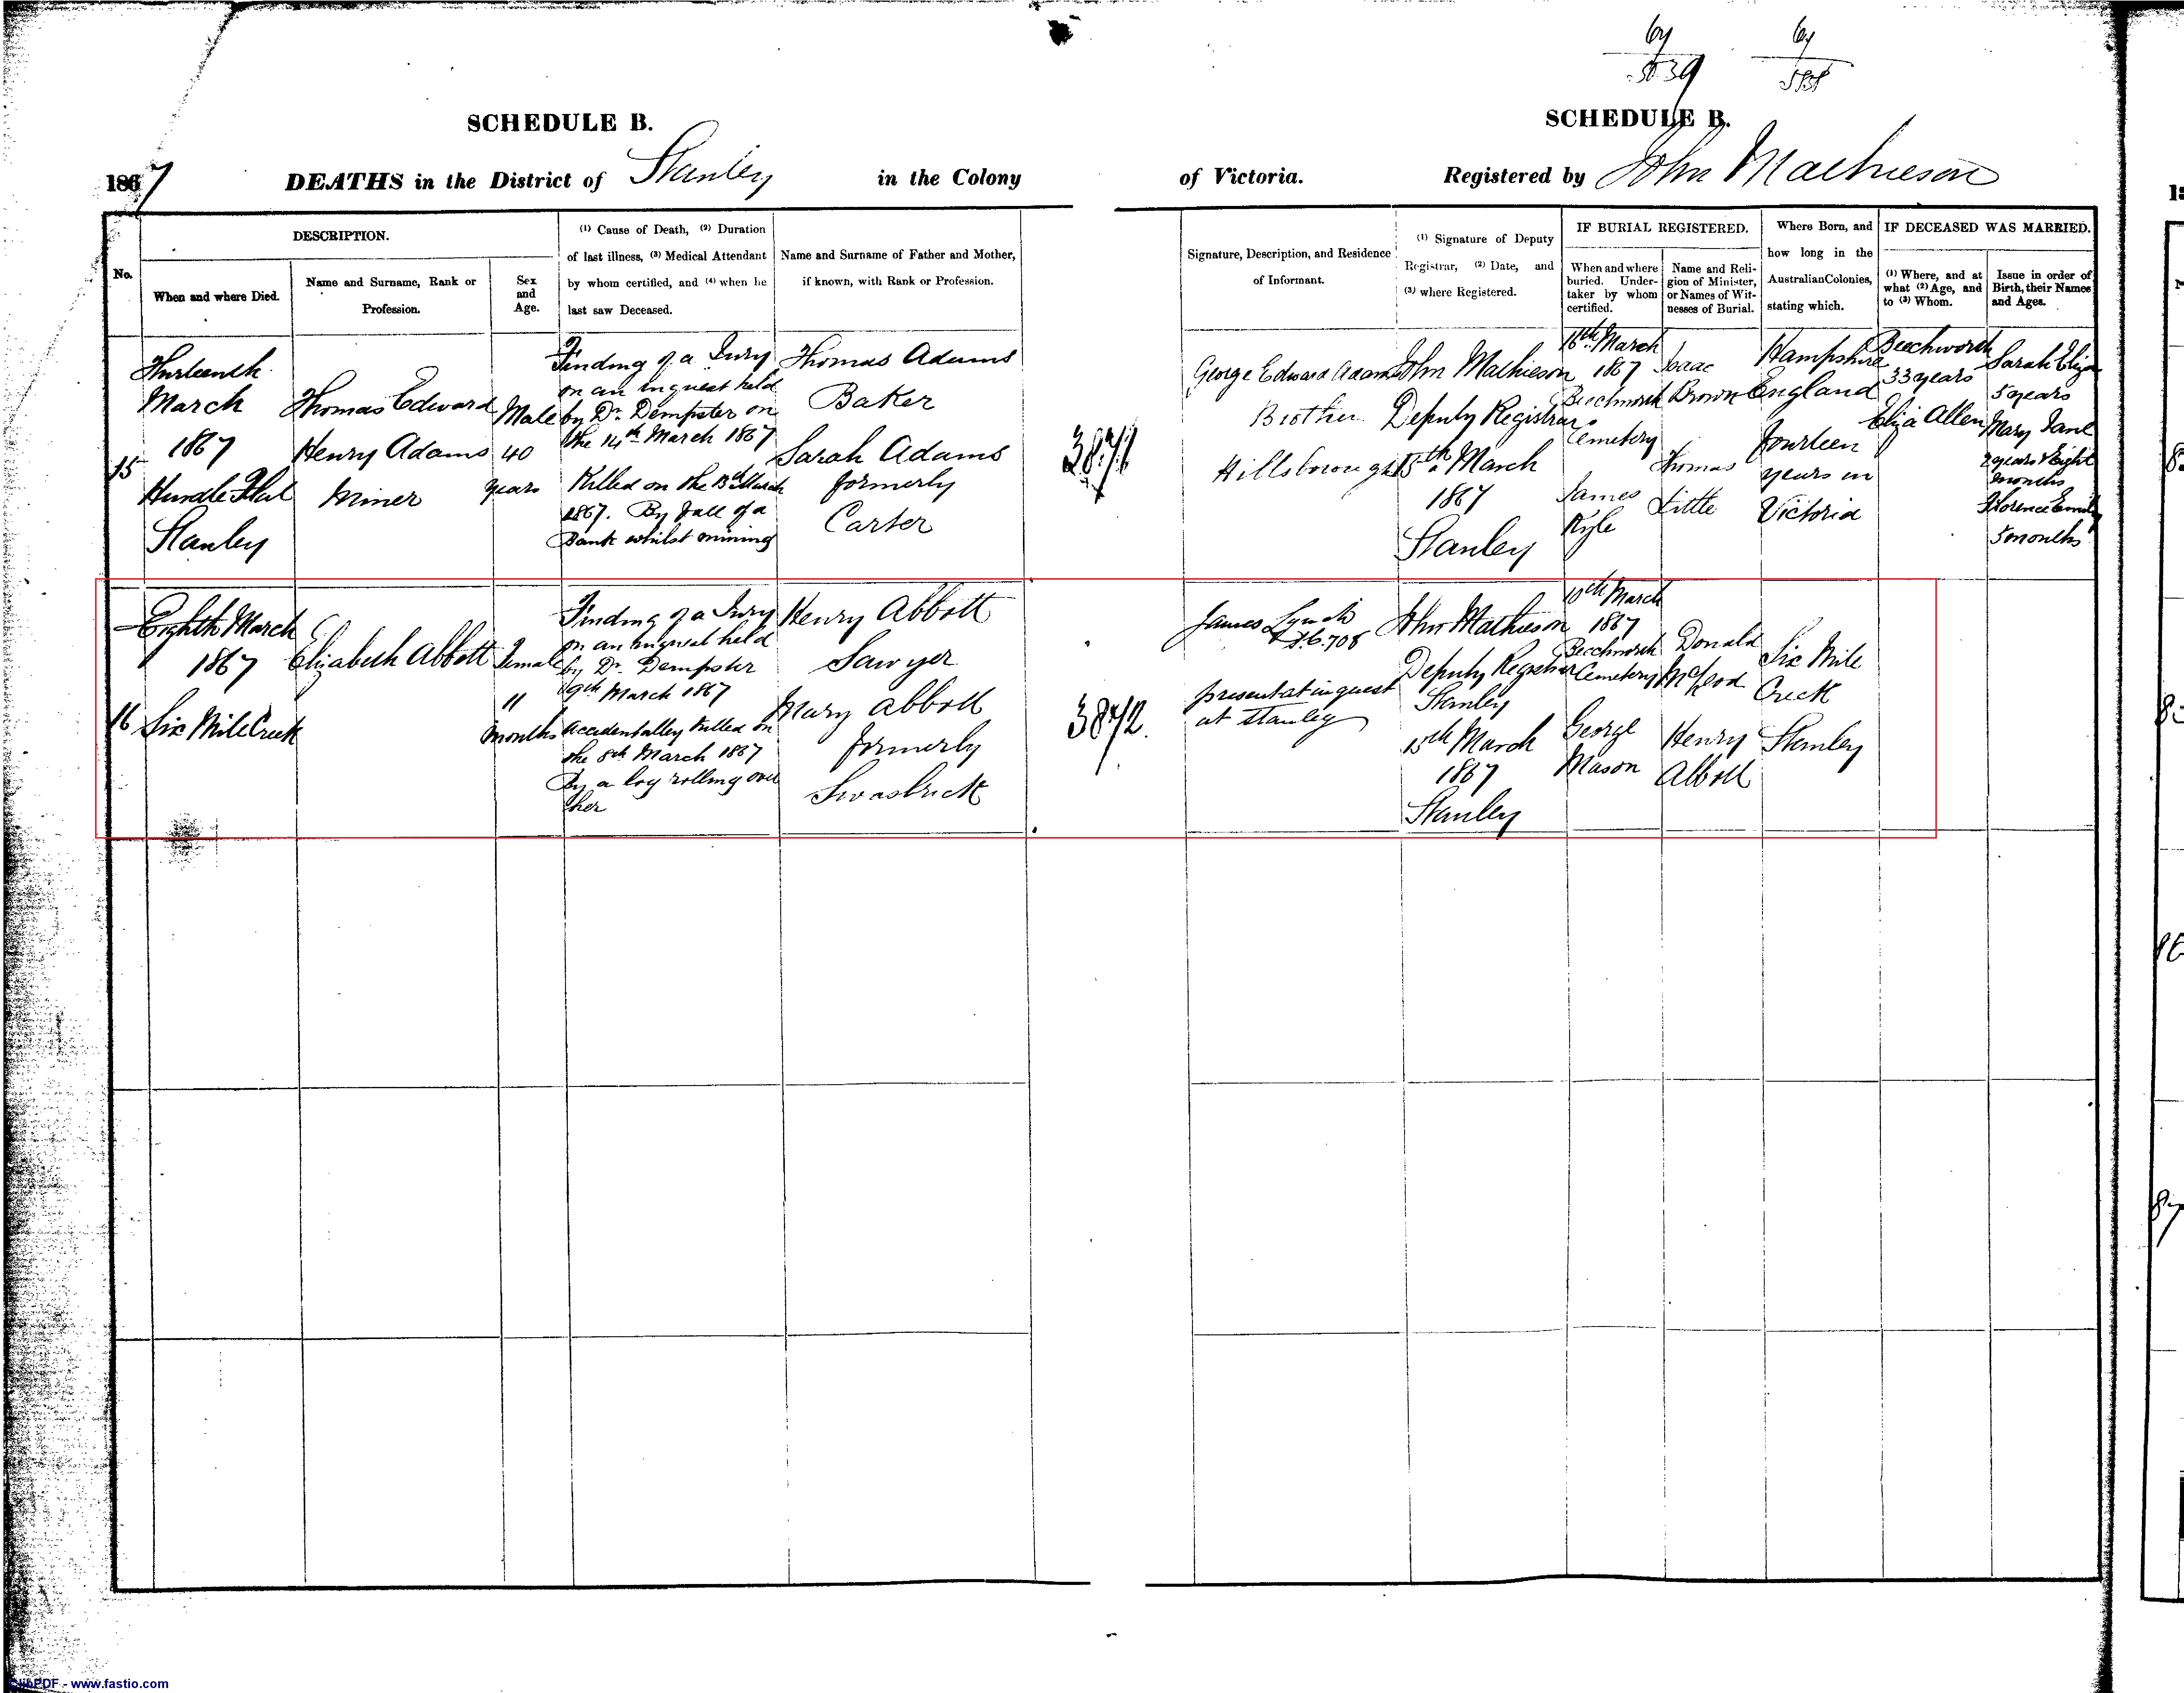 64
5539
64
SCHEDULE B.
SCHEDULE B.
1867
DEATHS in the District of Stanley in the Colony
of Victoria. Registered by John Mathieson
No.
DESCRIPTION.
When and where Died.
Name and Surname, Rank or
Profession.
Sex
and
Age.
(1) Cause of Death, (2) Duration
of last illness, (3) Medical Attendant
by whom certified, and (4) when he
last saw Deceased.
Name and Surname of Father and Mother,
if known, with Rank or Profession.
Signature, Description, and Residence
of Informant.
(1) Signature of Deputy
Registrar, (2) Date, and
(3) where Registered.
IF BURIAL REGISTERED.
When and where
buried. Under-
taker by whom
certified.
Name and Reli-
gion of Minister,
or Names of Wit-
nesses of Burial.
Where Born, and
how long in the
Australian Colonies,
stating which.
IF DECEASED WAS MARRIED.
(1) Where, and at
what (2) Age, and
to (3) Whom.
Issue in order of
Birth, their Names
and Ages.
15
Thirteenth
March
1867
Hurdle Flat
Stanley
Thomas Edward
Henry Adams
Miner
Male
40
years
Finding of a Jury
on an inquest held
by Dr. Dempster on
the 14th March 1867
Killed on the 13th March
1867. By fall of a
Bank whilst mining
Thomas Adams
Baker
Sarah Adams
formerly
Carter
3871
George Edward Adams
Brother
Hillsborough
John Mathieson
Deputy Registrar
15th March
1867
Stanley
16th March
1867
Beechworth
Cemetery
James
Kyle
Isaac
Brown
Thomas
Little
Hampshire
England
fourteen
years in
Victoria
Beechworth
33 years
Eliza Allen
Sarah Eliza
5 years
Mary Jane
2 years & eight
months
Florence Emily
5 months
16
Eighth March
1867
Six Mile Creek
Elizabeth Abbott
Female
11
months
Finding of a Jury
on an inquest held
by Dr. Dempster
19th March 1867
accidentalley killed on
the 8th March 1867
By a log rolling over
her
Henry Abbott
Sawyer
Mary Abbott
formerly
Swasbrick
3872.
James Lynch
S.C. 708
present at inquest
at Stanley
John Mathieson
Deputy Registrar
Stanley
15th March
1867
Stanley
10th March
1867
Beechworth
Cemetery
George
Mason
Donald
McLeod
Henry
Abbott
Six Mile
Creek
Stanley
ClibPDF - www.fastio.com